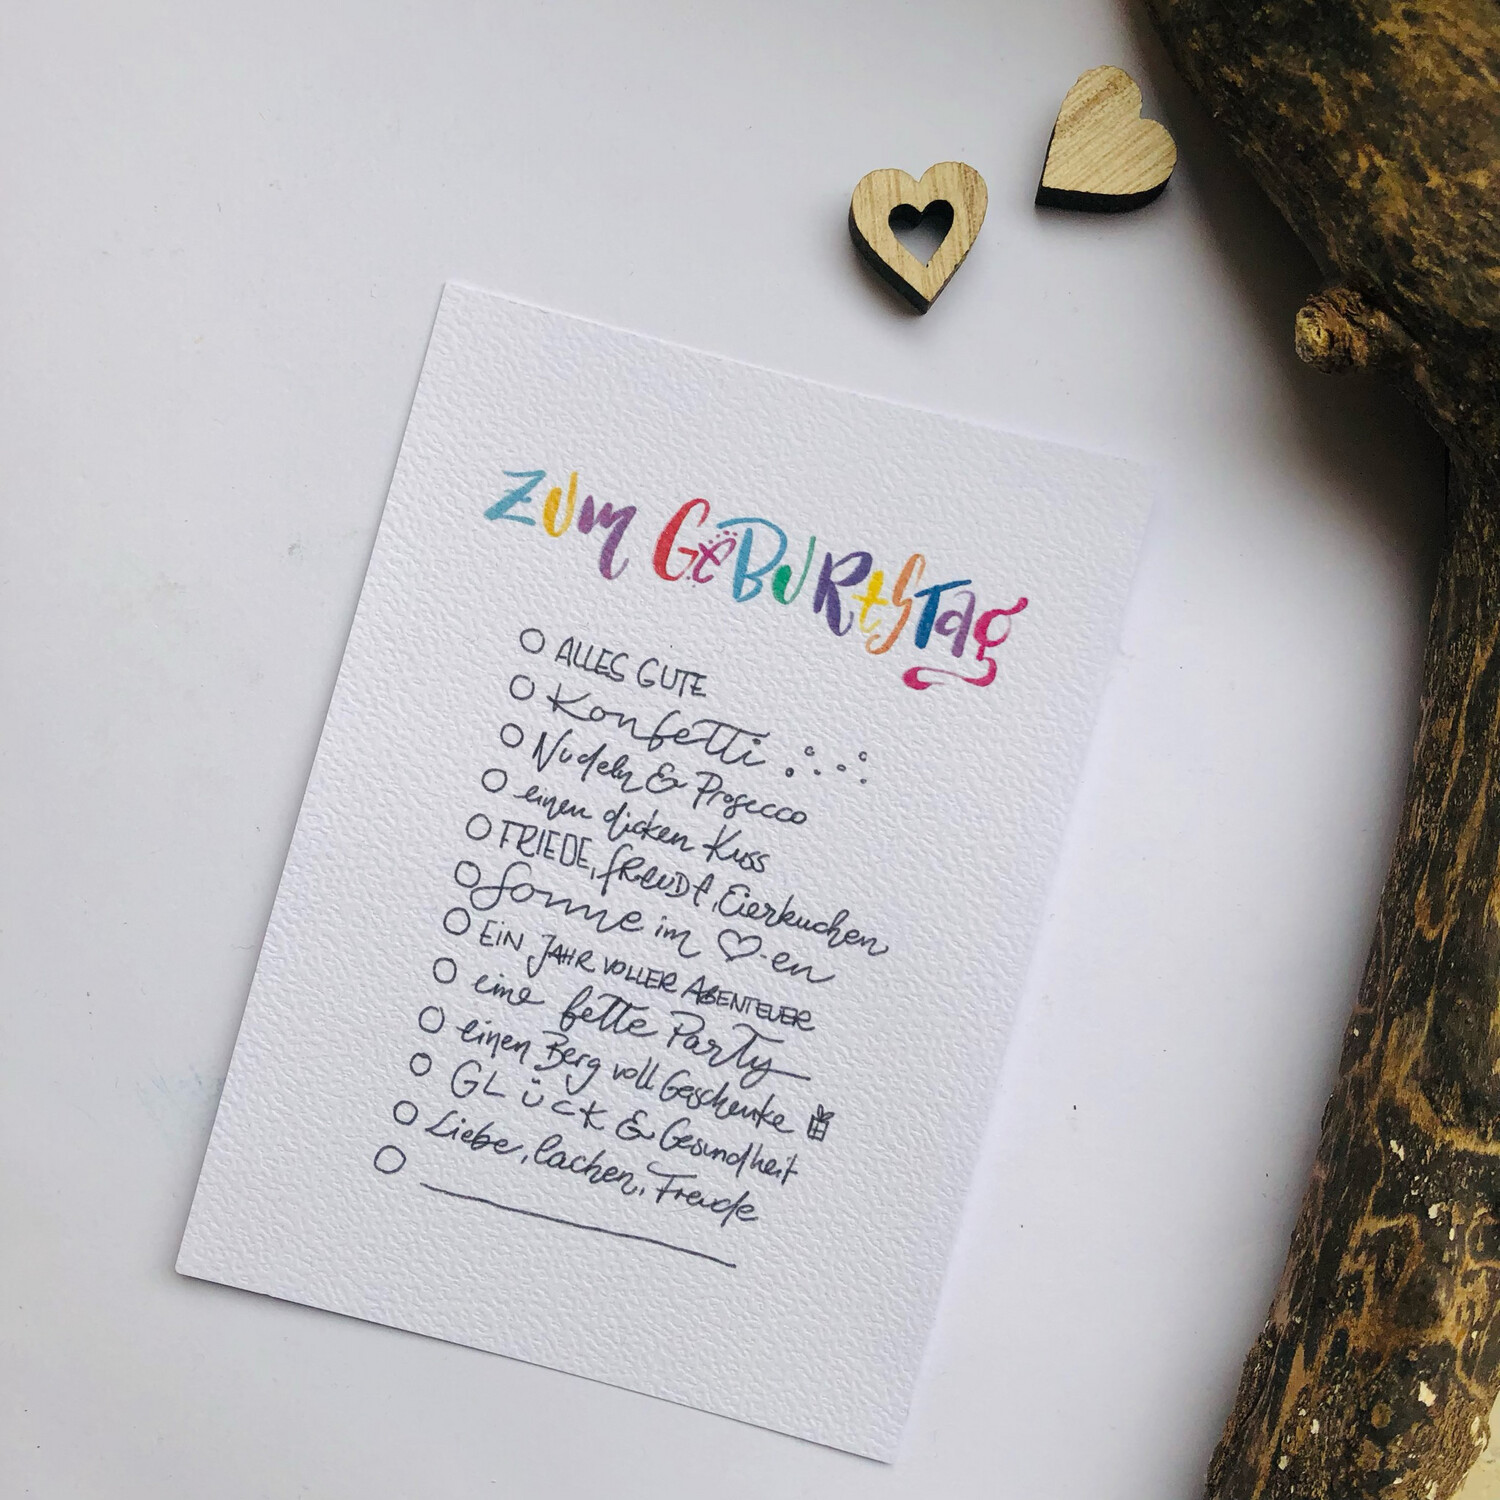 Zum Geburtstag
ALLES GUTE
Konfetti
Nudeln & Prosecco
einen dicken Kuss
FRIEDE, freude, Eierkuchen
Sonne im ♡-en
EIN JAHR VOLLER ABENTEUER
eine fette Party
einen Berg voll Geschenke
GLÜCK & Gesundheit
Liebe, lachen, Freude